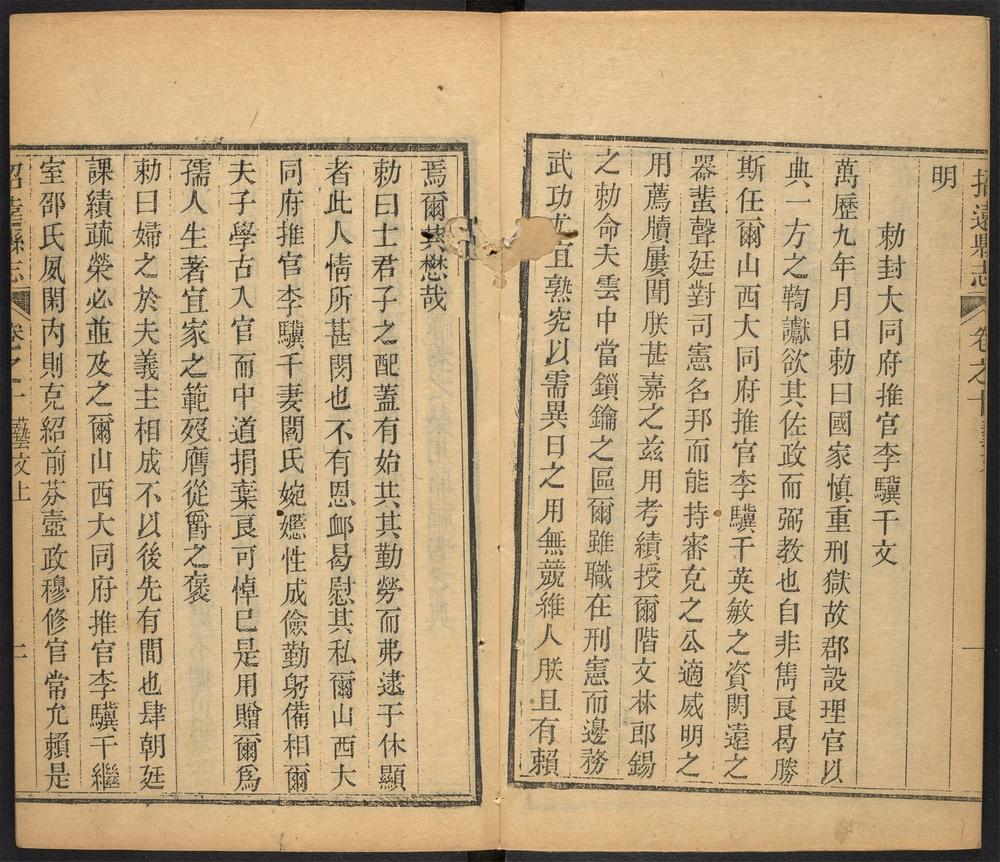 招遠縣志 卷之十 一
明
勅封大同府推官李驥千文
萬歷九年月日勅曰國家慎重刑獄故郡設理官以
典一方之鞫讞欲其佐政而弼教也自非雋良曷勝
斯任爾山西大同府推官李驥千英敏之資閎遠之
器蜚聲廷對司憲名邦而能持審克之公適威明之
用薦牘屢聞朕甚嘉之茲用考績授爾階文林郎錫
之勅命夫雲中當鎖鑰之區爾雖職在刑憲而邊務
武功尤宜熟究以需異日之用無競維人朕且有賴
焉爾其懋哉
勅曰士君子之配蓋有始共其勤勞而弗逮于休顯
者此人情所甚閔也不有恩䘏曷慰其私爾山西大
同府推官李驥千妻閻氏婉嫕性成儉勤躬備相爾
夫子學古入官而中道捐棄良可悼已是用贈爾爲
孺人生著宜家之範歿膺從爵之褒
勅曰婦之於夫義主相成不以後先有間也肆朝廷
課績疏榮必並及之爾山西大同府推官李驥千繼
室邵氏夙閑內則克紹前芬壼政穆修官常允賴是
招遠縣志 卷之十 藝文上 二